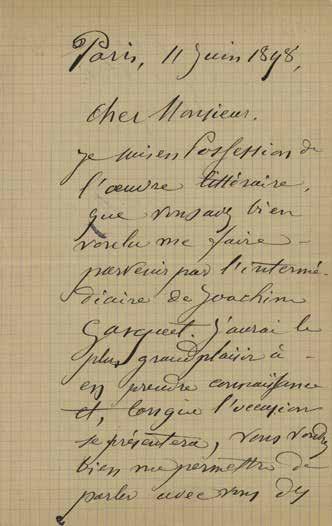 Paris, 11 Juin 1898,
Cher Monsieur.
je suis en Possession de
l'œuvre littéraire,
que vous avez bien
voulu me faire -
parvenir par l'intermé-
diaire de Joachim
Gasquet. J'aurai le
plus grand plaisir à -
en prendre connaissance
et, lorsque l'occasion
se présentera, vous voudrez
bien me permettre de
parler avec vous